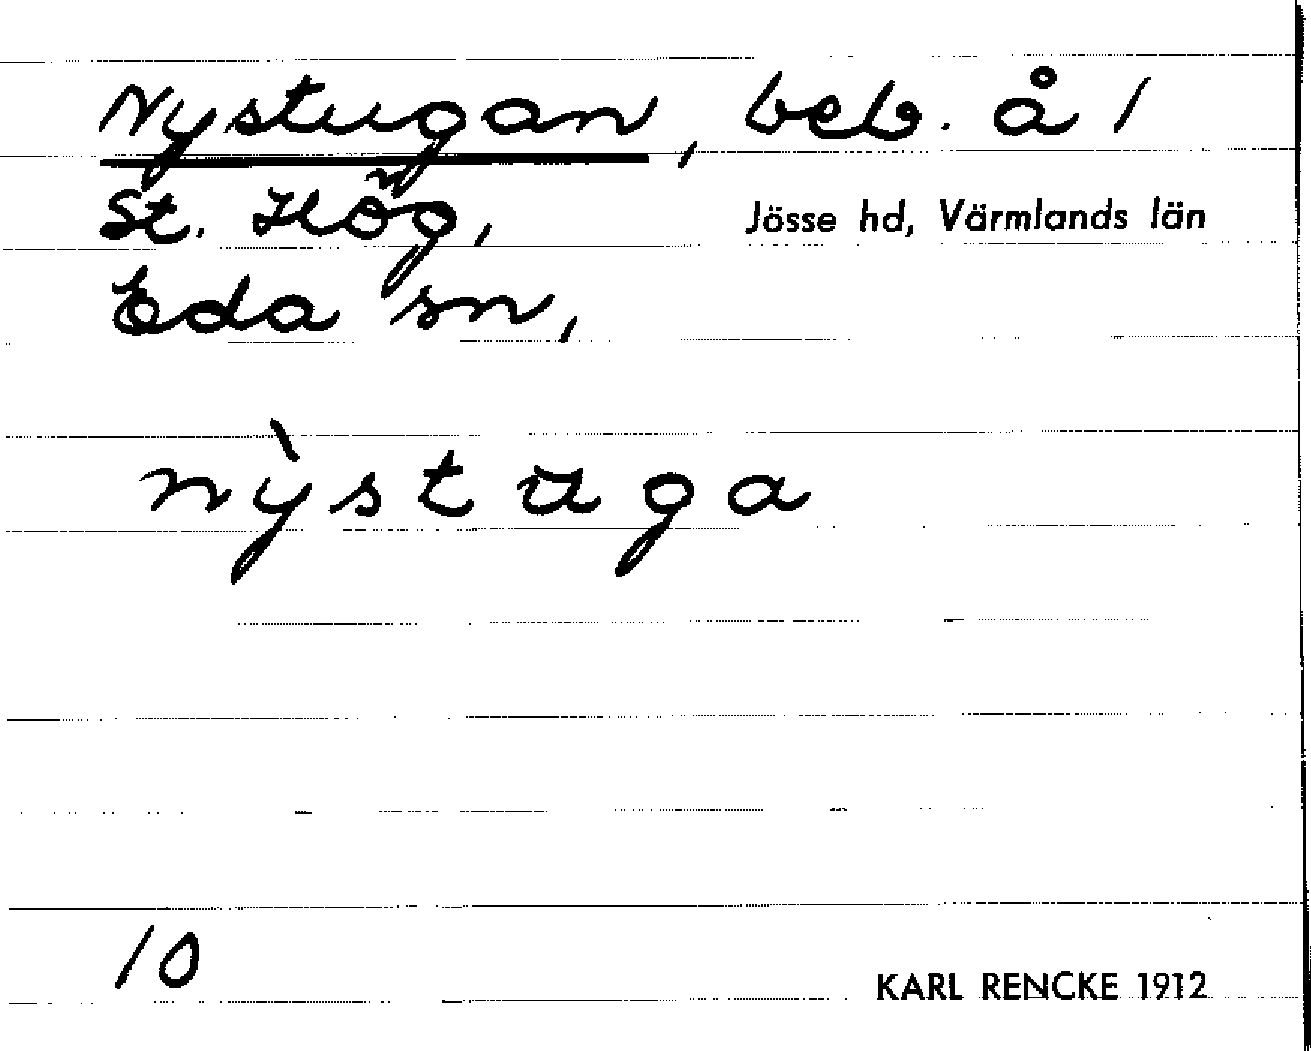 Nystugan, beb. å 1
St. Hög, Jösse hd, Värmlands län
Eda sn,
nỳstuga
10
KARL RENCKE 1912